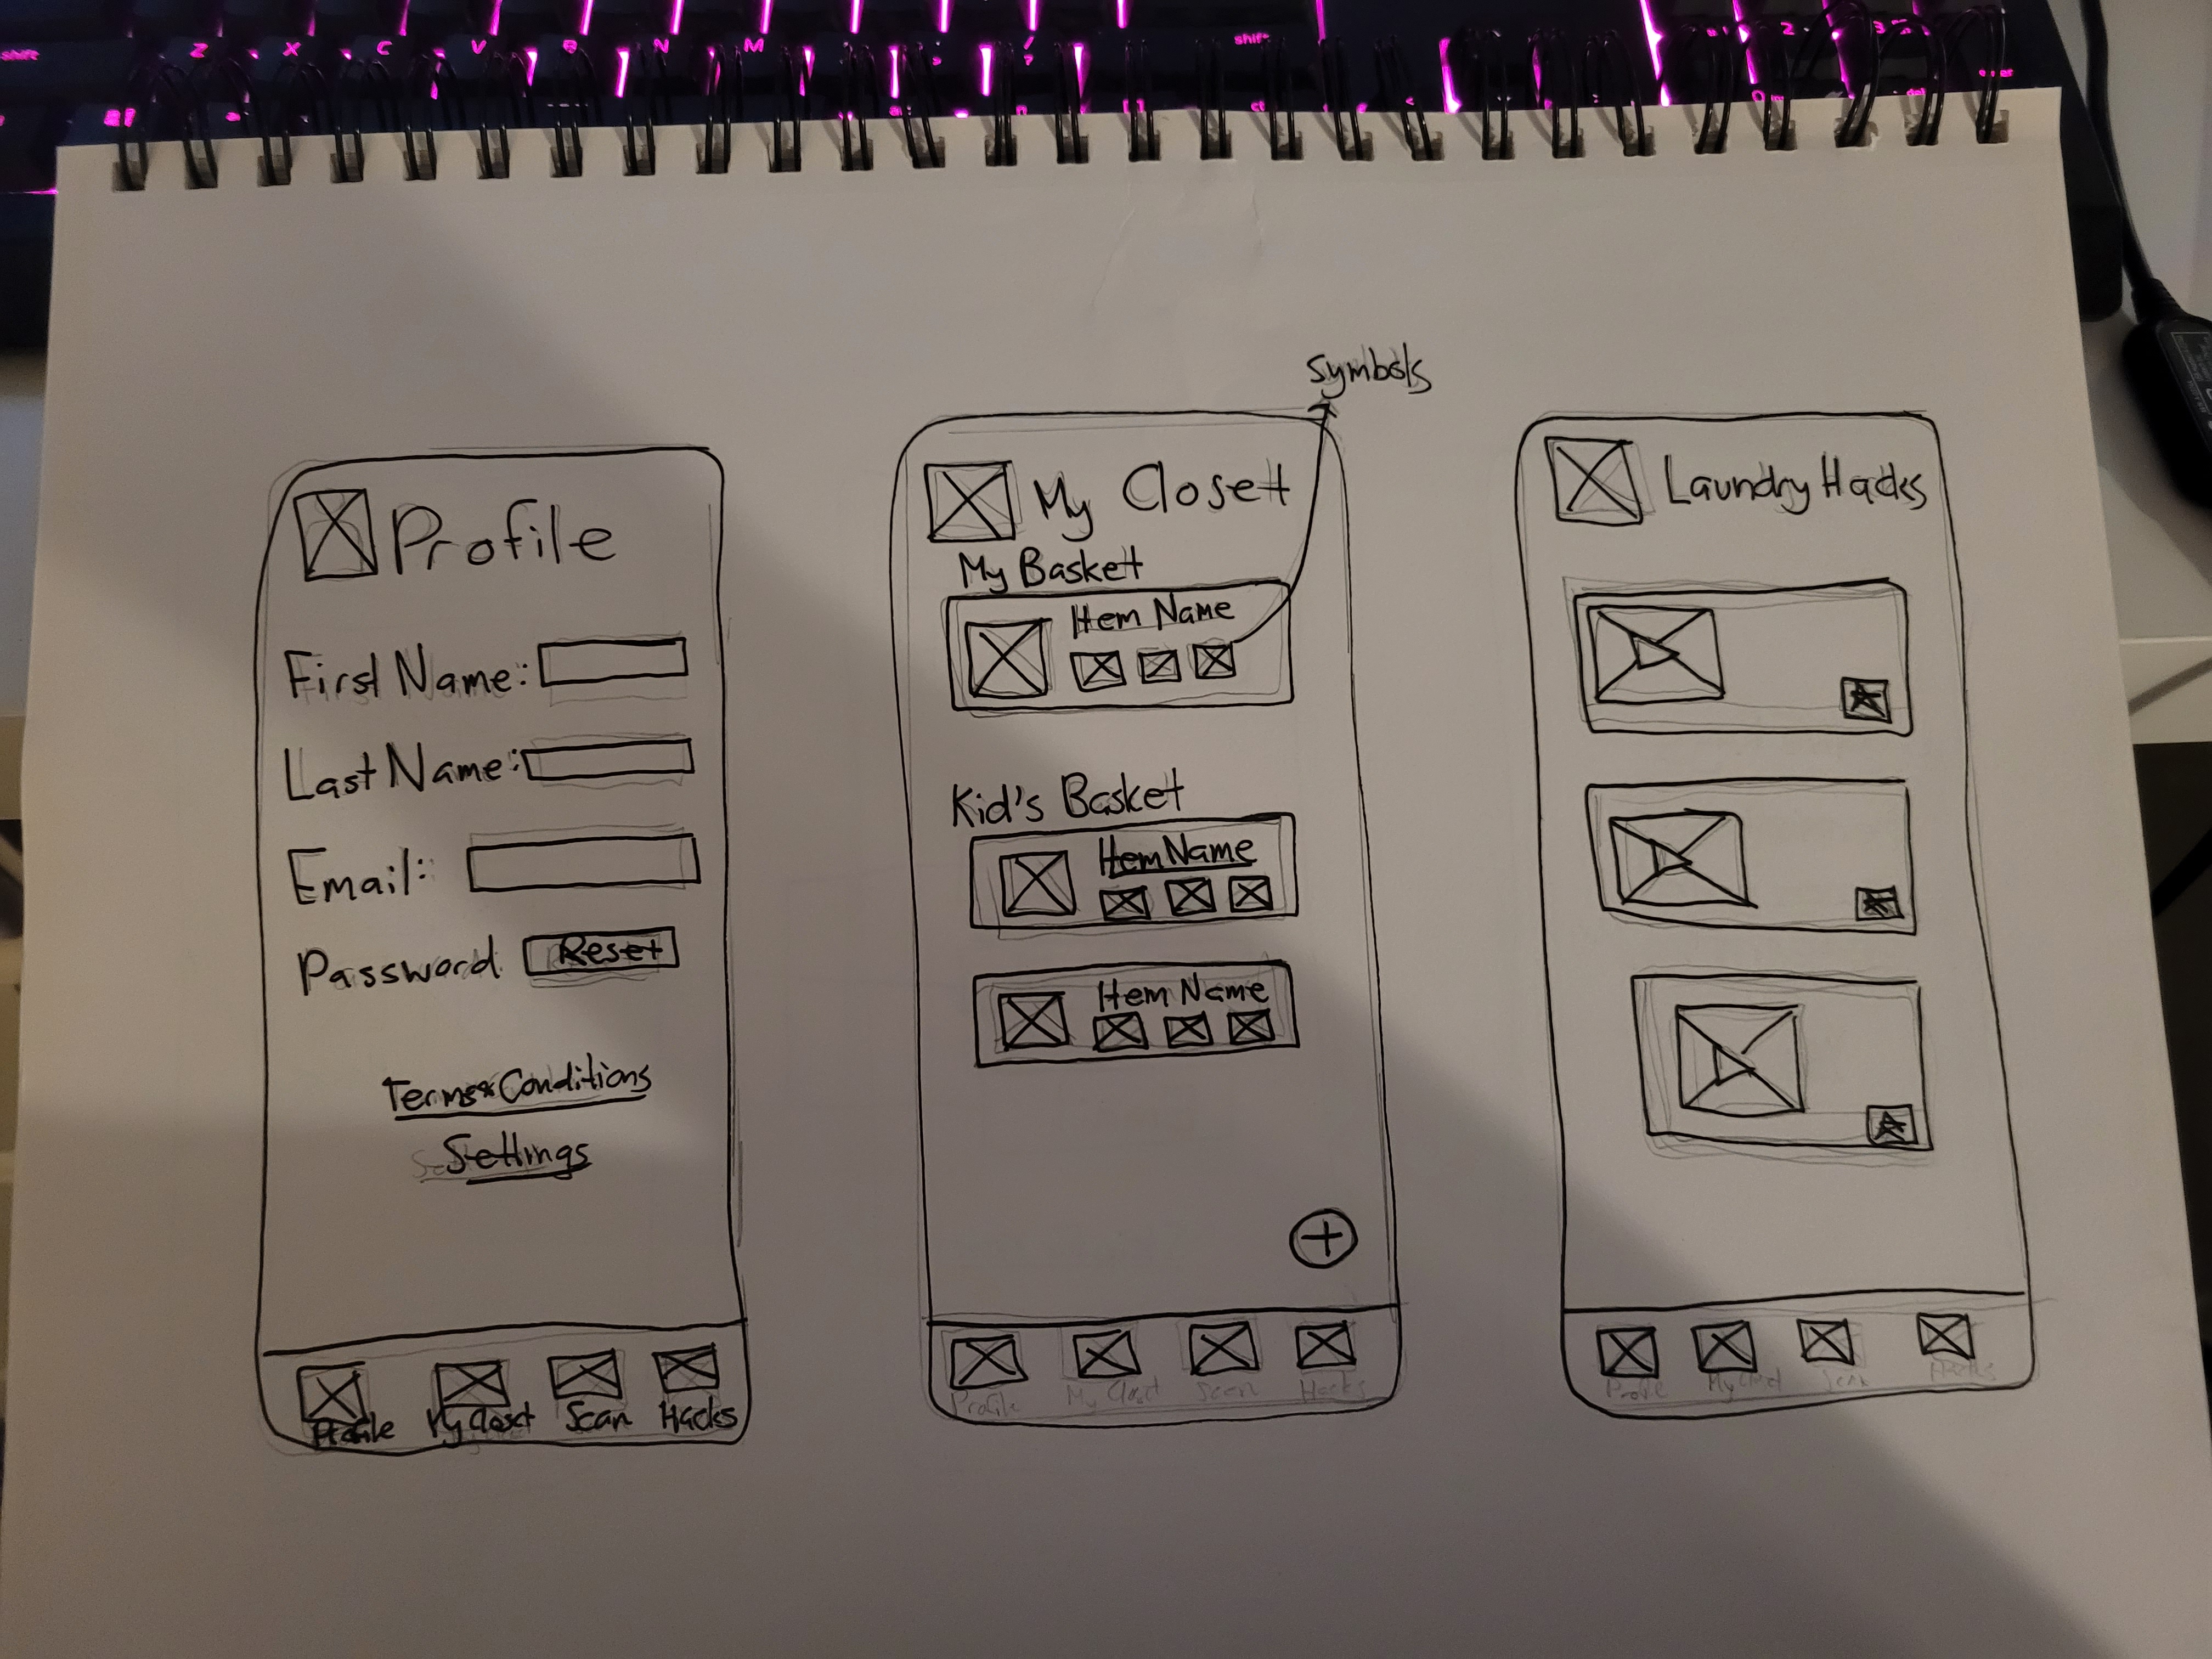 shift
Z X C V B N M
shift
Profile
First Name:
Last Name:
Email:
Password Reset
Terms & Conditions
Settings
Profile My Closet Scan Hacks
symbols
My Closet
My Basket
Item Name
Kid's Basket
Item Name
Item Name
Profile My Closet Scan Hacks
Laundry Hacks
Profile My Closet Scan Hacks